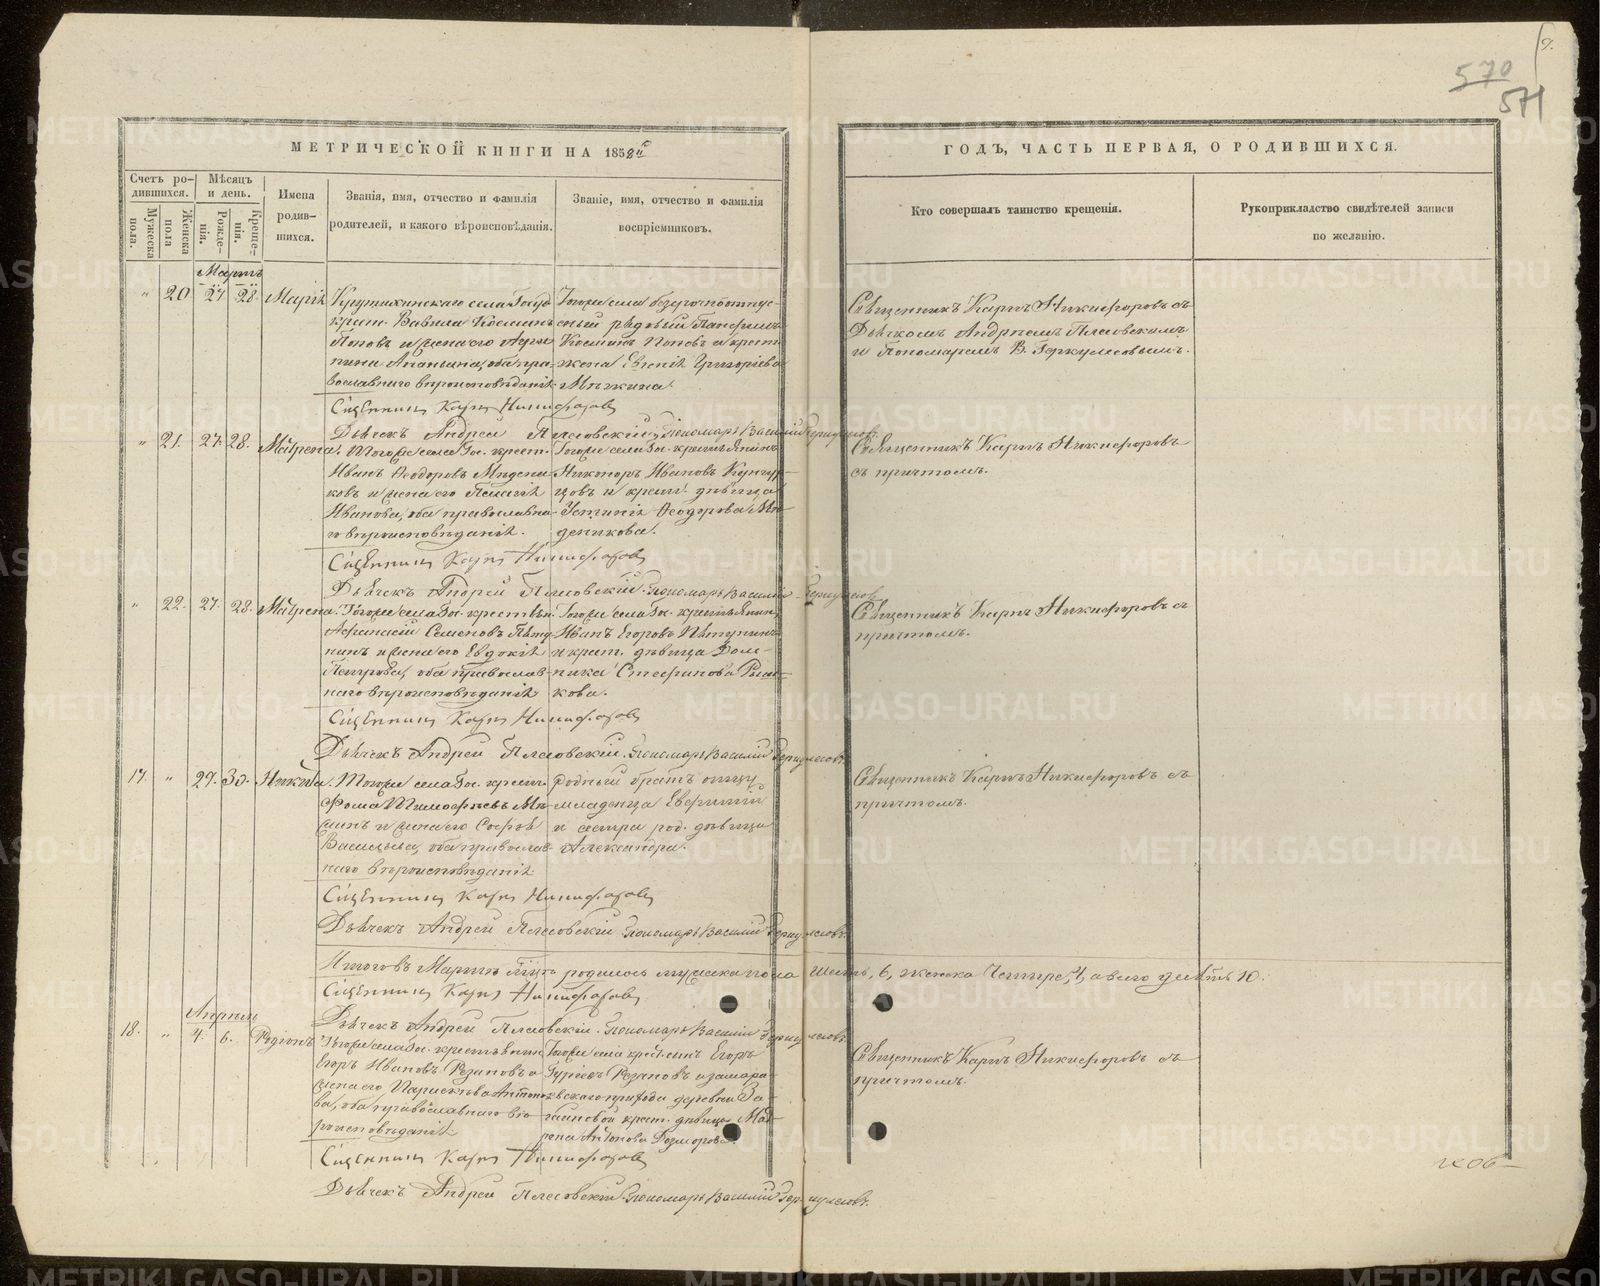 570
571
МЕТРИЧЕСКОЙ КНИГИ НА 1858й
ГОДЪ, ЧАСТЬ ПЕРВАЯ, О РОДИВШИХСЯ.
Счетъ ро-
дившихся.
Мужеска пола.
Женска пола
Мѣсяцъ
и день.
Рожде-
нія.
Креще-
нія.
Имена
родив-
шихся.
Званія, имя, отчество и фамилія
родителей, и какого вѣроисповѣданія.
Званіе, имя, отчество и фамилія
воспріемниковъ.
Кто совершалъ таинство крещенія.
Рукоприкладство свидѣтелей записи
по желанію.
Мартъ
" 20 27 28 Марія
Крутихинскаго села Госуд
крест. Вавила Косминъ
Поповъ и жена его Агри
пина Ананьина, оба пра-
вославнаго вѣроисповѣданія
Тогоже села безсрочноотпус-
сный рядовый Панфилъ
Косминъ Поповъ и крест.
жена Евгенія Григорьева
Мякина.
Священникъ Карпъ Никифоровъ съ
Дьячкомъ Андреемъ Плесовскимъ
и Пономаремъ В. Геркулесовымъ.
Священникъ Карпъ Никифоровъ
Дьячекъ Андрей Плесовскій, Пономарь Василій Геркулесовъ.
" 21. 27. 28. Матрена.
Тогоже села Гос. крест.
Иванъ Ѳеодоровъ
и жена его Пелагія
Иванова, оба православна-
го вѣроисповѣданія.
Тогоже села Гос. крестьянинъ
Никаноръ Ивановъ Кунгур-
цовъ и крест. дѣвица
Устинія Ѳеодорова
Священникъ Карпъ Никифоровъ
съ причтомъ.
Священникъ Карпъ Никифоровъ
Дьячекъ Андрей Плесовскій. Пономарь Василій Геркулесов
" 22. 27. 28. Матрена.
Тогоже села Гос. крестьян.
Афанасій Семеновъ Пѣту
хинъ и жена его Евдокія
Петрова, оба православ-
наго вѣроисповѣданія
Тогоже села Гос. крестьянин
Иванъ Егоровъ Пѣтухинъ
и крест. дѣвица Дом-
ника Стефанова
кова.
Священникъ Карпъ Никифоровъ съ
причтомъ.
Священникъ Карпъ Никифоровъ
Дьячекъ Андрей Плесовскій. Пономарь Василій Геркулесовъ
17. " 29. 30. Никита.
Тогоже села Гос. крест.
Фома Тимофѣевъ
и жена его Софья
Васильева, оба православ-
наго вѣроисповѣданія
Родный братъ отцу
младенца Евгений
и сестра род. дѣвица
Александра.
Священникъ Карпъ Никифоровъ съ
причтомъ.
Священникъ Карпъ Никифоровъ
Дьячекъ Андрей Плесовскій Пономарь Василій Геркулесовъ.
Итого въ Мартѣ родилось мужска пола шесть, 6, женска Четыре, 4, а всего десять 10.
Священникъ Карпъ Никифоровъ
Дьячекъ Андрей Плесовскій. Пономарь Василій Геркулесовъ.
Апрѣль
18. " 4. 6. Родіонъ
Тогоже села Гос. крестьянин
Егоръ Ивановъ Резановъ и
жена его Парасковья Антоно
ва, оба православнаго вѣ-
роисповѣданія
Тогоже села крестьянинъ Егоръ
Гурьевъ Резановъ и замара
евскаго прихода деревни За-
баиновой крест. дѣвица Мат
рена Антонова
Священникъ Карпъ Никифоровъ съ
причтомъ.
Священникъ Карпъ Никифоровъ
Дьячекъ Андрей Плесовскій. Пономарь Василій Геркулесовъ.